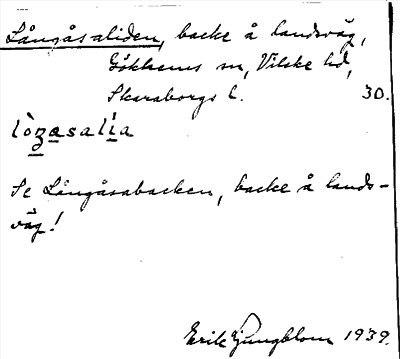 Långåsaliden, backe å landsväg,
Gökhems sn, Vilske hd,
Skaraborgs l. 30.
Se Långåsabacken, backe å lands-
väg!
Erik Ljungblom 1939.